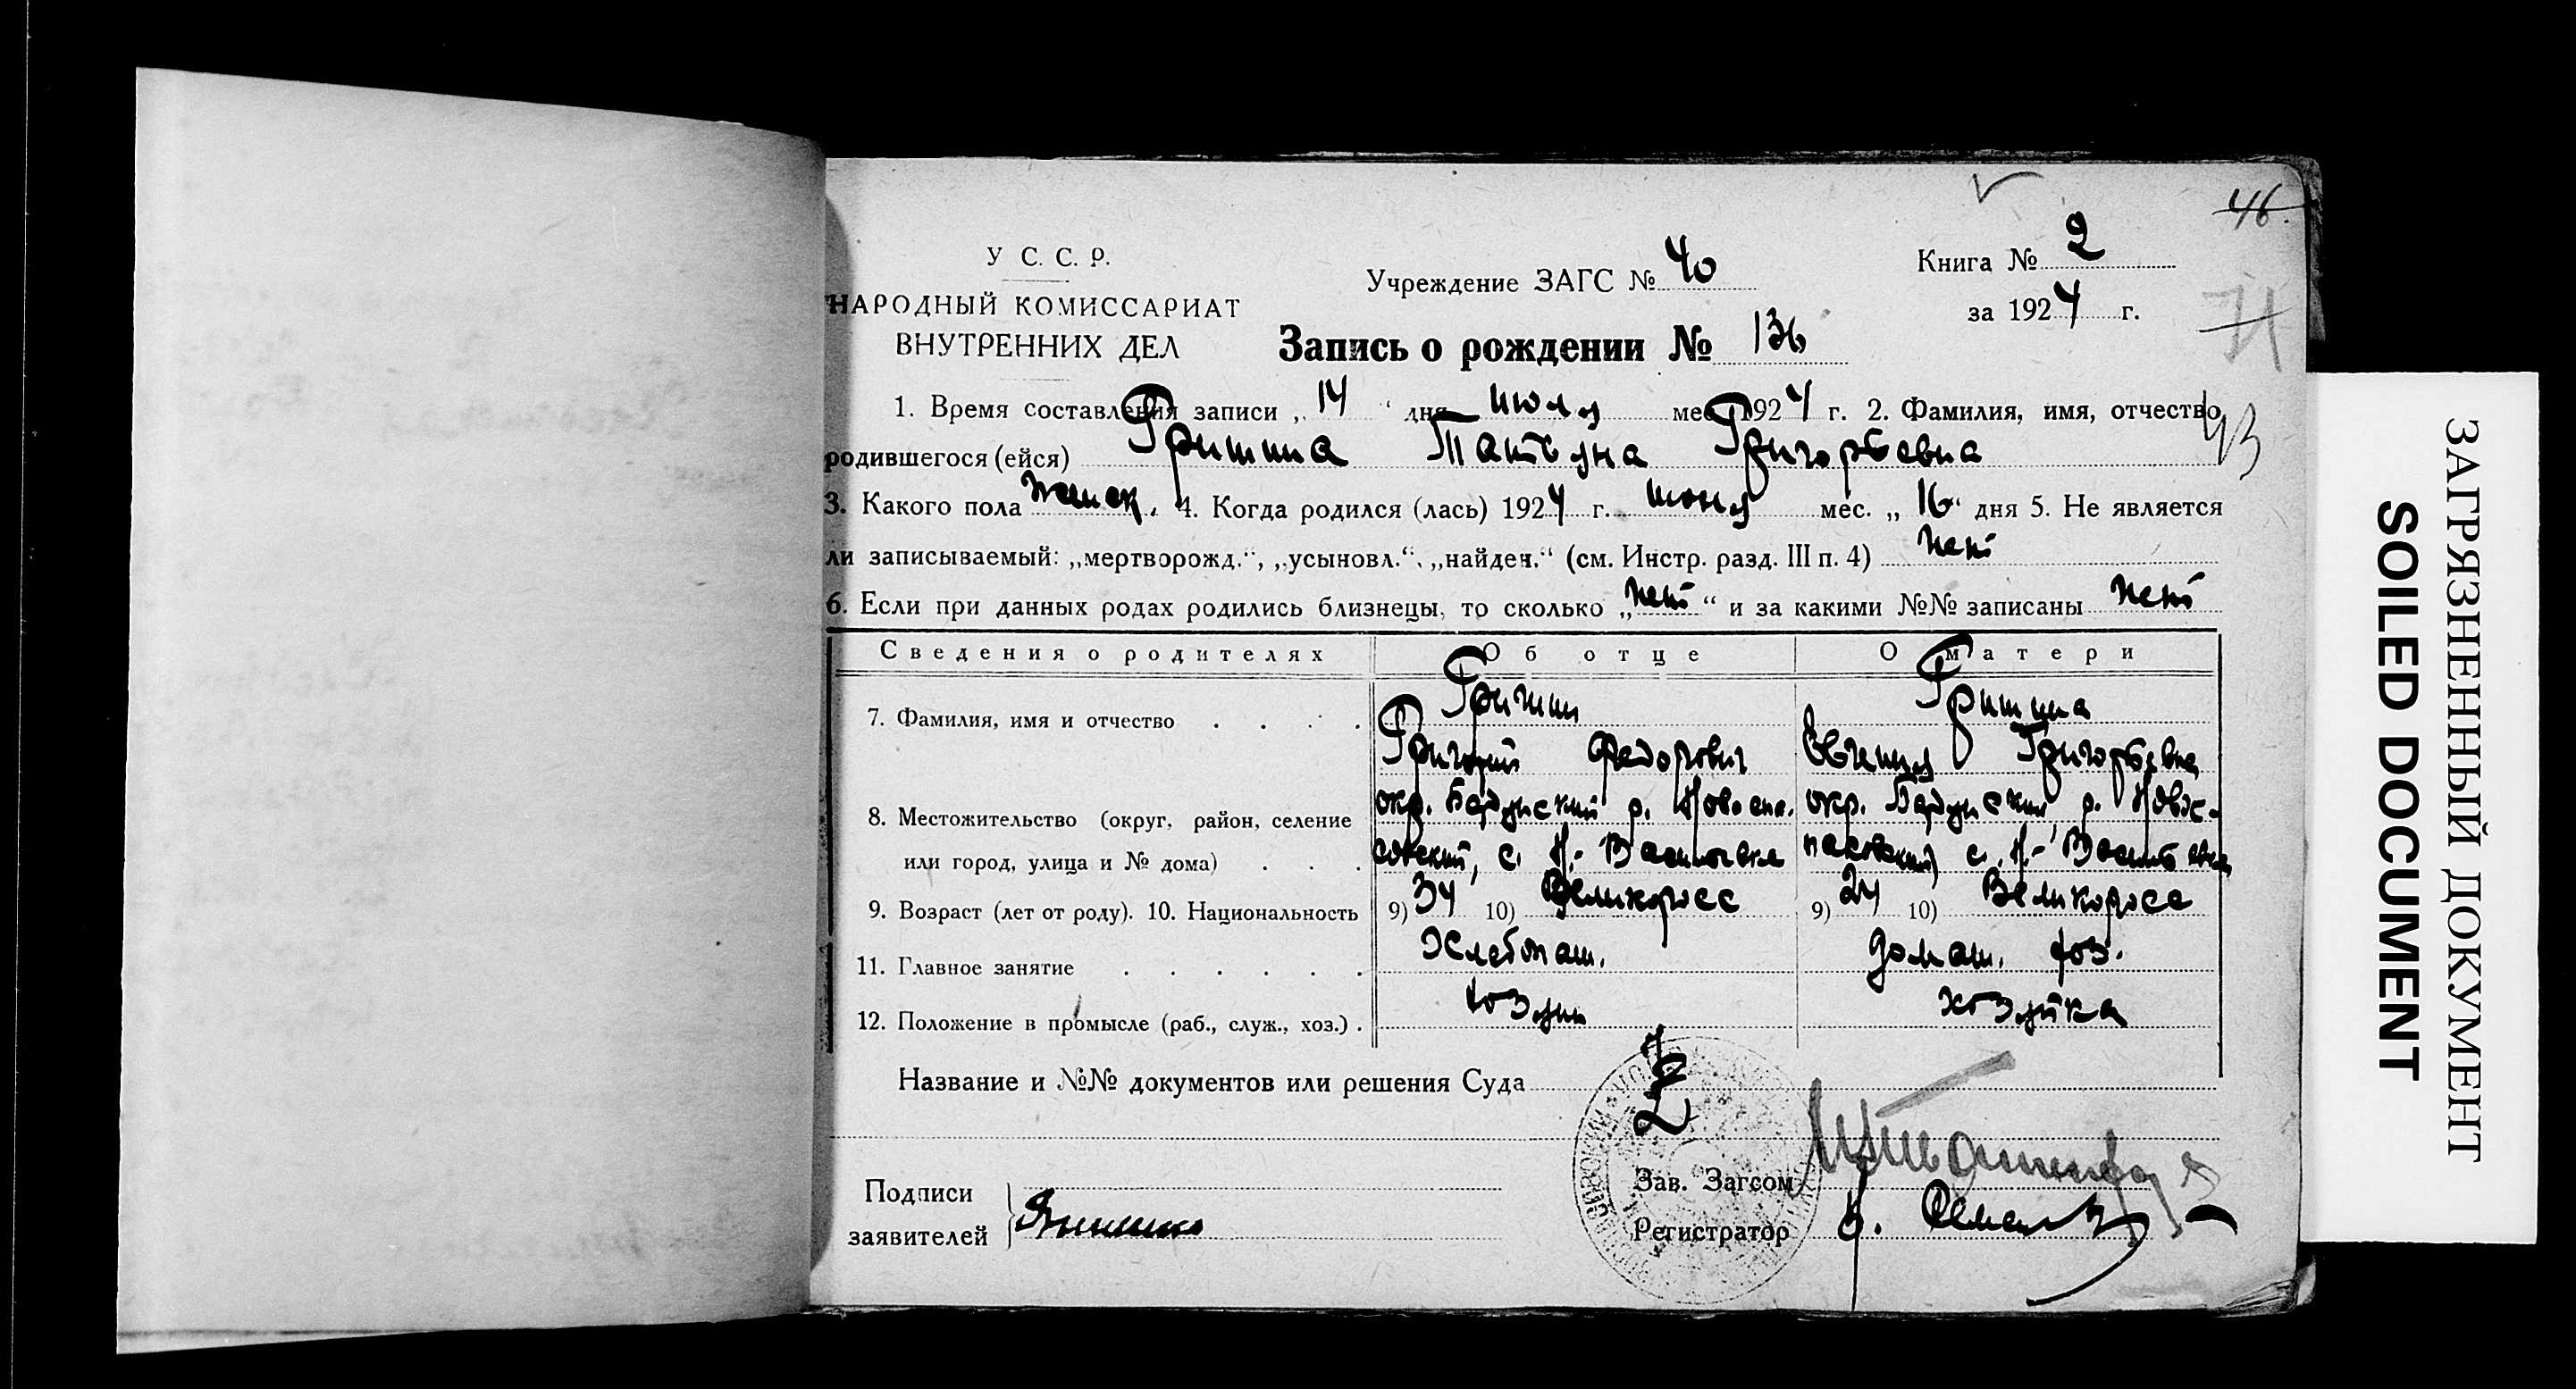 46.
У С. С. Р.
НАРОДНЫЙ КОМИССАРИАТ
ВНУТРЕННИХ ДЕЛ
Учреждение ЗАГС № 40
Книга № 2
за 1924 г.
71
Запись о рождении № 136
1. Время составления записи „ 14 “ дня июля мес. 1924 г. 2. Фамилия, имя, отчество
93
родившегося (ейся) Гришина Татьяна Григорьевна
3. Какого пола женск. 4. Когда родился (лась) 1924 г. июня мес. „ 16 “ дня 5. Не является
ли записываемый: „мертворожд.“, „усыновл.“, „найден.“ (см. Инстр. разд. III п. 4) нет
6. Если при данных родах родились близнецы, то сколько „нет“ и за какими №№ записаны нет
Сведения о родителях Об отце О матери
7. Фамилия, имя и отчество Гришин Григорий Федорович Гришина Евгения Григорьевна
8. Местожительство (округ, район, селение
или город, улица и № дома)
окр. Бердянский р. Новоспа-
совский, с. Н.-Васильевка
окр. Бердянский р. Новос-
пасовский с. Н.-Васильевка
9. Возраст (лет от роду). 10. Национальность 9) 34 10) Великоросс 9) 24 10) Великоросс
11. Главное занятие Хлебопаш. домаш. хоз.
12. Положение в промысле (раб., служ., хоз.) хозяин хозяйка
Название и №№ документов или решения Суда
Подписи
заявителей
Зав. Загсом
Регистратор
ЗАГРЯЗНЕННЫЙ ДОКУМЕНТ
SOILED DOCUMENT